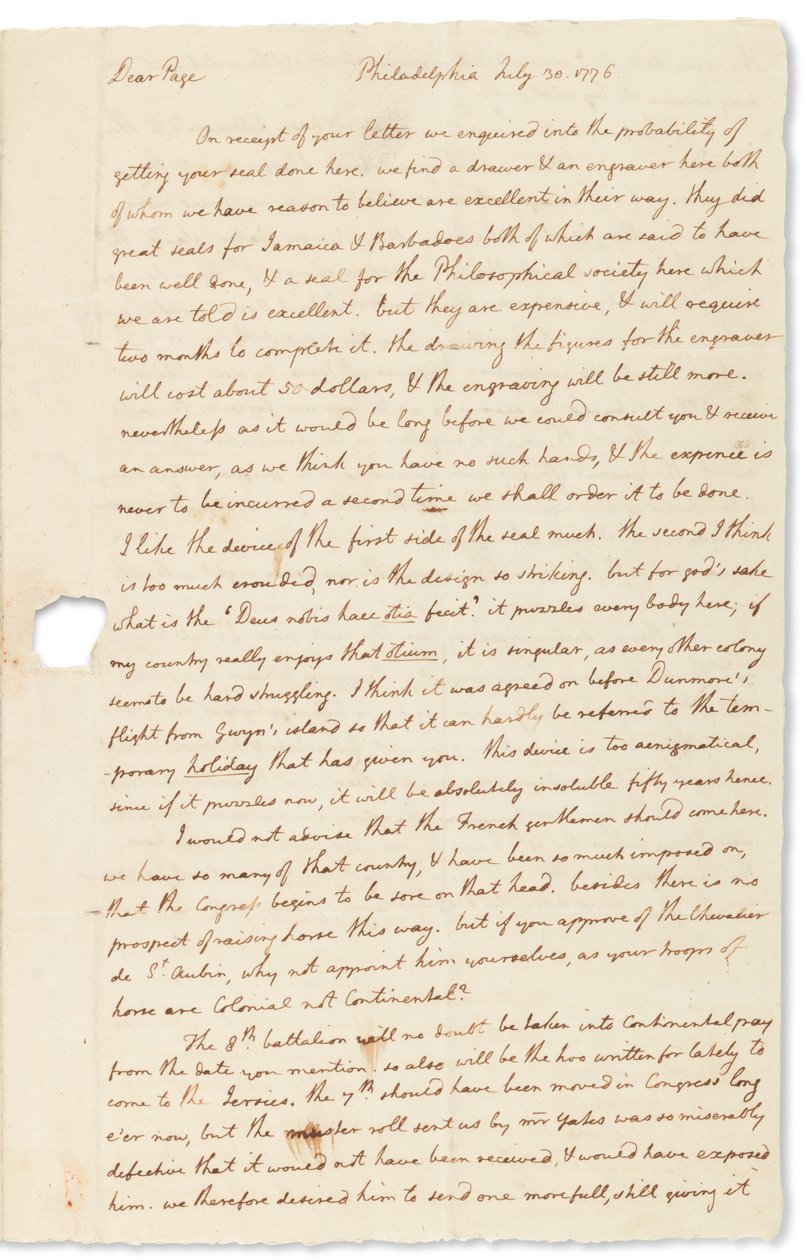 Dear Page Philadelphia July 30. 1776.
On receipt of your letter we enquired into the probability of
getting your seal done here. we find a drawer & an engraver here both
of whom we have reason to believe are excellent in their way. they did
great seals for Jamaica & Barbadoes both of which are said to have
been well done, & a seal for the Philosophical society here which
we are told is excellent. but they are expensive, & will require
two months to complete it. the drawing the figures for the engraver
will cost about 50 dollars, & the engraving will be still more.
nevertheless as it would be long before we could consult you & receive
an answer, as we think you have no such hands, & the expence is
never to be incurred a second time we shall order it to be done.
I like the device of the first side of the seal much. the second I think
is too much crouded, nor is the design so striking. but for god's sake
what is the 'Deus nobis haec otia fecit.' it puzzles every body here; if
my country really enjoys that otium, it is singular, as every other colony
seems to be hard struggling. I think it was agreed on before Dunmore's
flight from Gwyn's island so that it can hardly be referred to the tem-
-porary holiday that has given you. this device is too aenigmatical,
since if it puzzles now, it will be absolutely insoluble fifty years hence.
I would not advise that the French gentlemen should come here.
we have so many of that country, & have been so much imposed on,
that the Congress begins to be sore on that head. besides there is no
prospect of raising horse this way. but if you approve of the Chevalier
de St. Aubin, why not appoint him yourselves, as your troops of
horse are Colonial not Continental?
The 8th. battalion will no doubt be taken into Continental pay
from the date you mention. so also will be the two written for lately to
come to the Jersies. the 7th. should have been moved in Congress long
e'er now, but the muster roll sent us by mr Yates was so miserably
defective that it would not have been received, & would have exposed
him. we therefore desired him to send one more full, still giving it